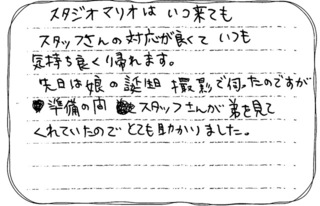 スタジオマリオは いつ来ても
スタッフさんの対応が良くて いつも
気持ち良くり帰れます。
先日は娘の誕生日撮影で伺ったのですが
準備の間 スタッフさんが弟を見て
くれていたので とても助かりました。